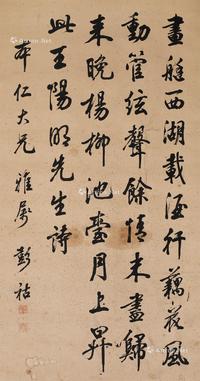 畫艇西湖載酒行藕花風
動管絃聲餘情未盡歸
来晚楊柳池臺月上昇
此王陽明先生詩
本仁大兄 雅屬 彭祜